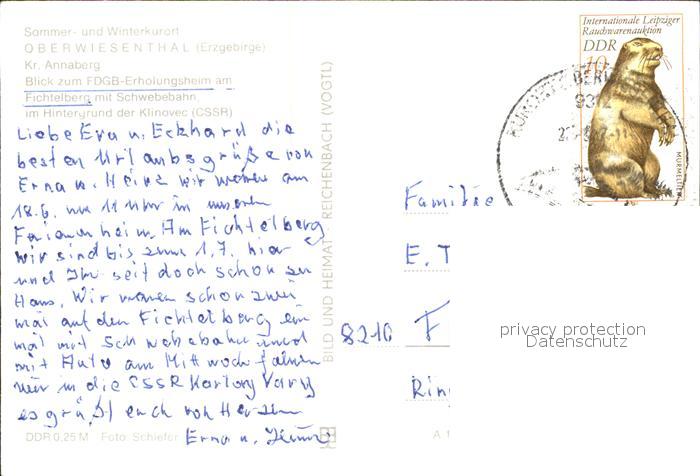 Sommer- und Winterkurort
OBERWIESENTHAL (Erzgebirge)
Kr. Annaberg
Blick zum FDGB-Erholungsheim am
Fichtelberg mit Schwebebahn,
im Hintergrund der Klinovec (CSSR)
Liebe Eva u. Eckhard die
besten Urlaubsgrüße von
Erna u. Heinz wir waren am
18.6. um 11 Uhr in unseren
Ferienheim. Am Fichtelberg
wir sind bis zum 1.7. hier
und Ihr seit doch schon zu
Haus. Wir waren schon zwei
mal auf den Fichtelberg ein
mal mit Schwebebahn und
mit Auto am Mittwoch fahren
wir in die CSSR Karlovy Vary
es grüßt euch von Herzen
Erna u. Heinz
DDR 0,25 M Foto: Schiefer
BILD UND HEIMAT REICHENBACH (VOGTL)
A 1
Internationale Leipziger
Rauchwarenauktion
DDR
10
MURMELTIER
Familie
E. T
8210 F
Rin
privacy protection
Datenschutz